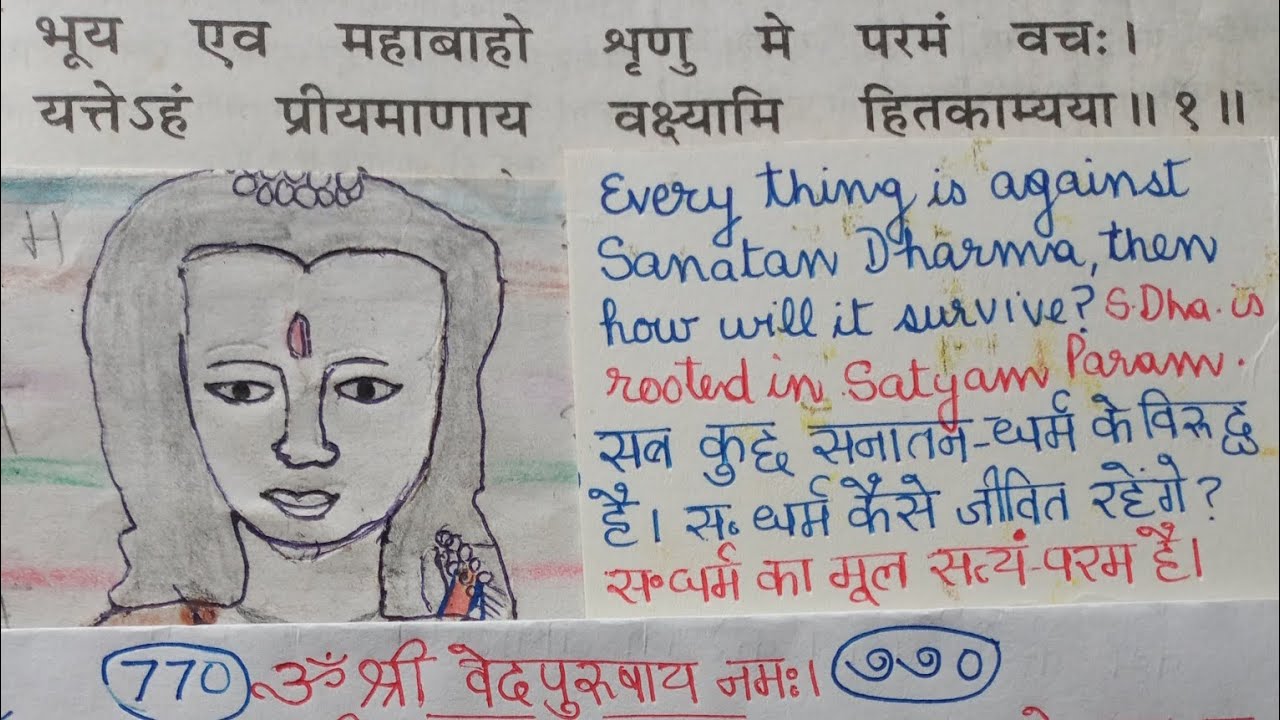 भूय एव महाबाहो शृणु मे परमं वचः।
यत्तेऽहं प्रीयमाणाय वक्ष्यामि हितकाम्यया॥ १ ॥
H
Every thing is against
Sanatan Dharma, then
how will it survive? S.Dha. is
rooted in Satyam Param.
सब कुछ सनातन-धर्म के विरुद्ध
है। स॰ धर्म कैसे जीवित रहेंगे?
स॰धर्म का मूल सत्यं-परम है।
770 ॐ श्री वेदपुरुषाय नमः। ७७०